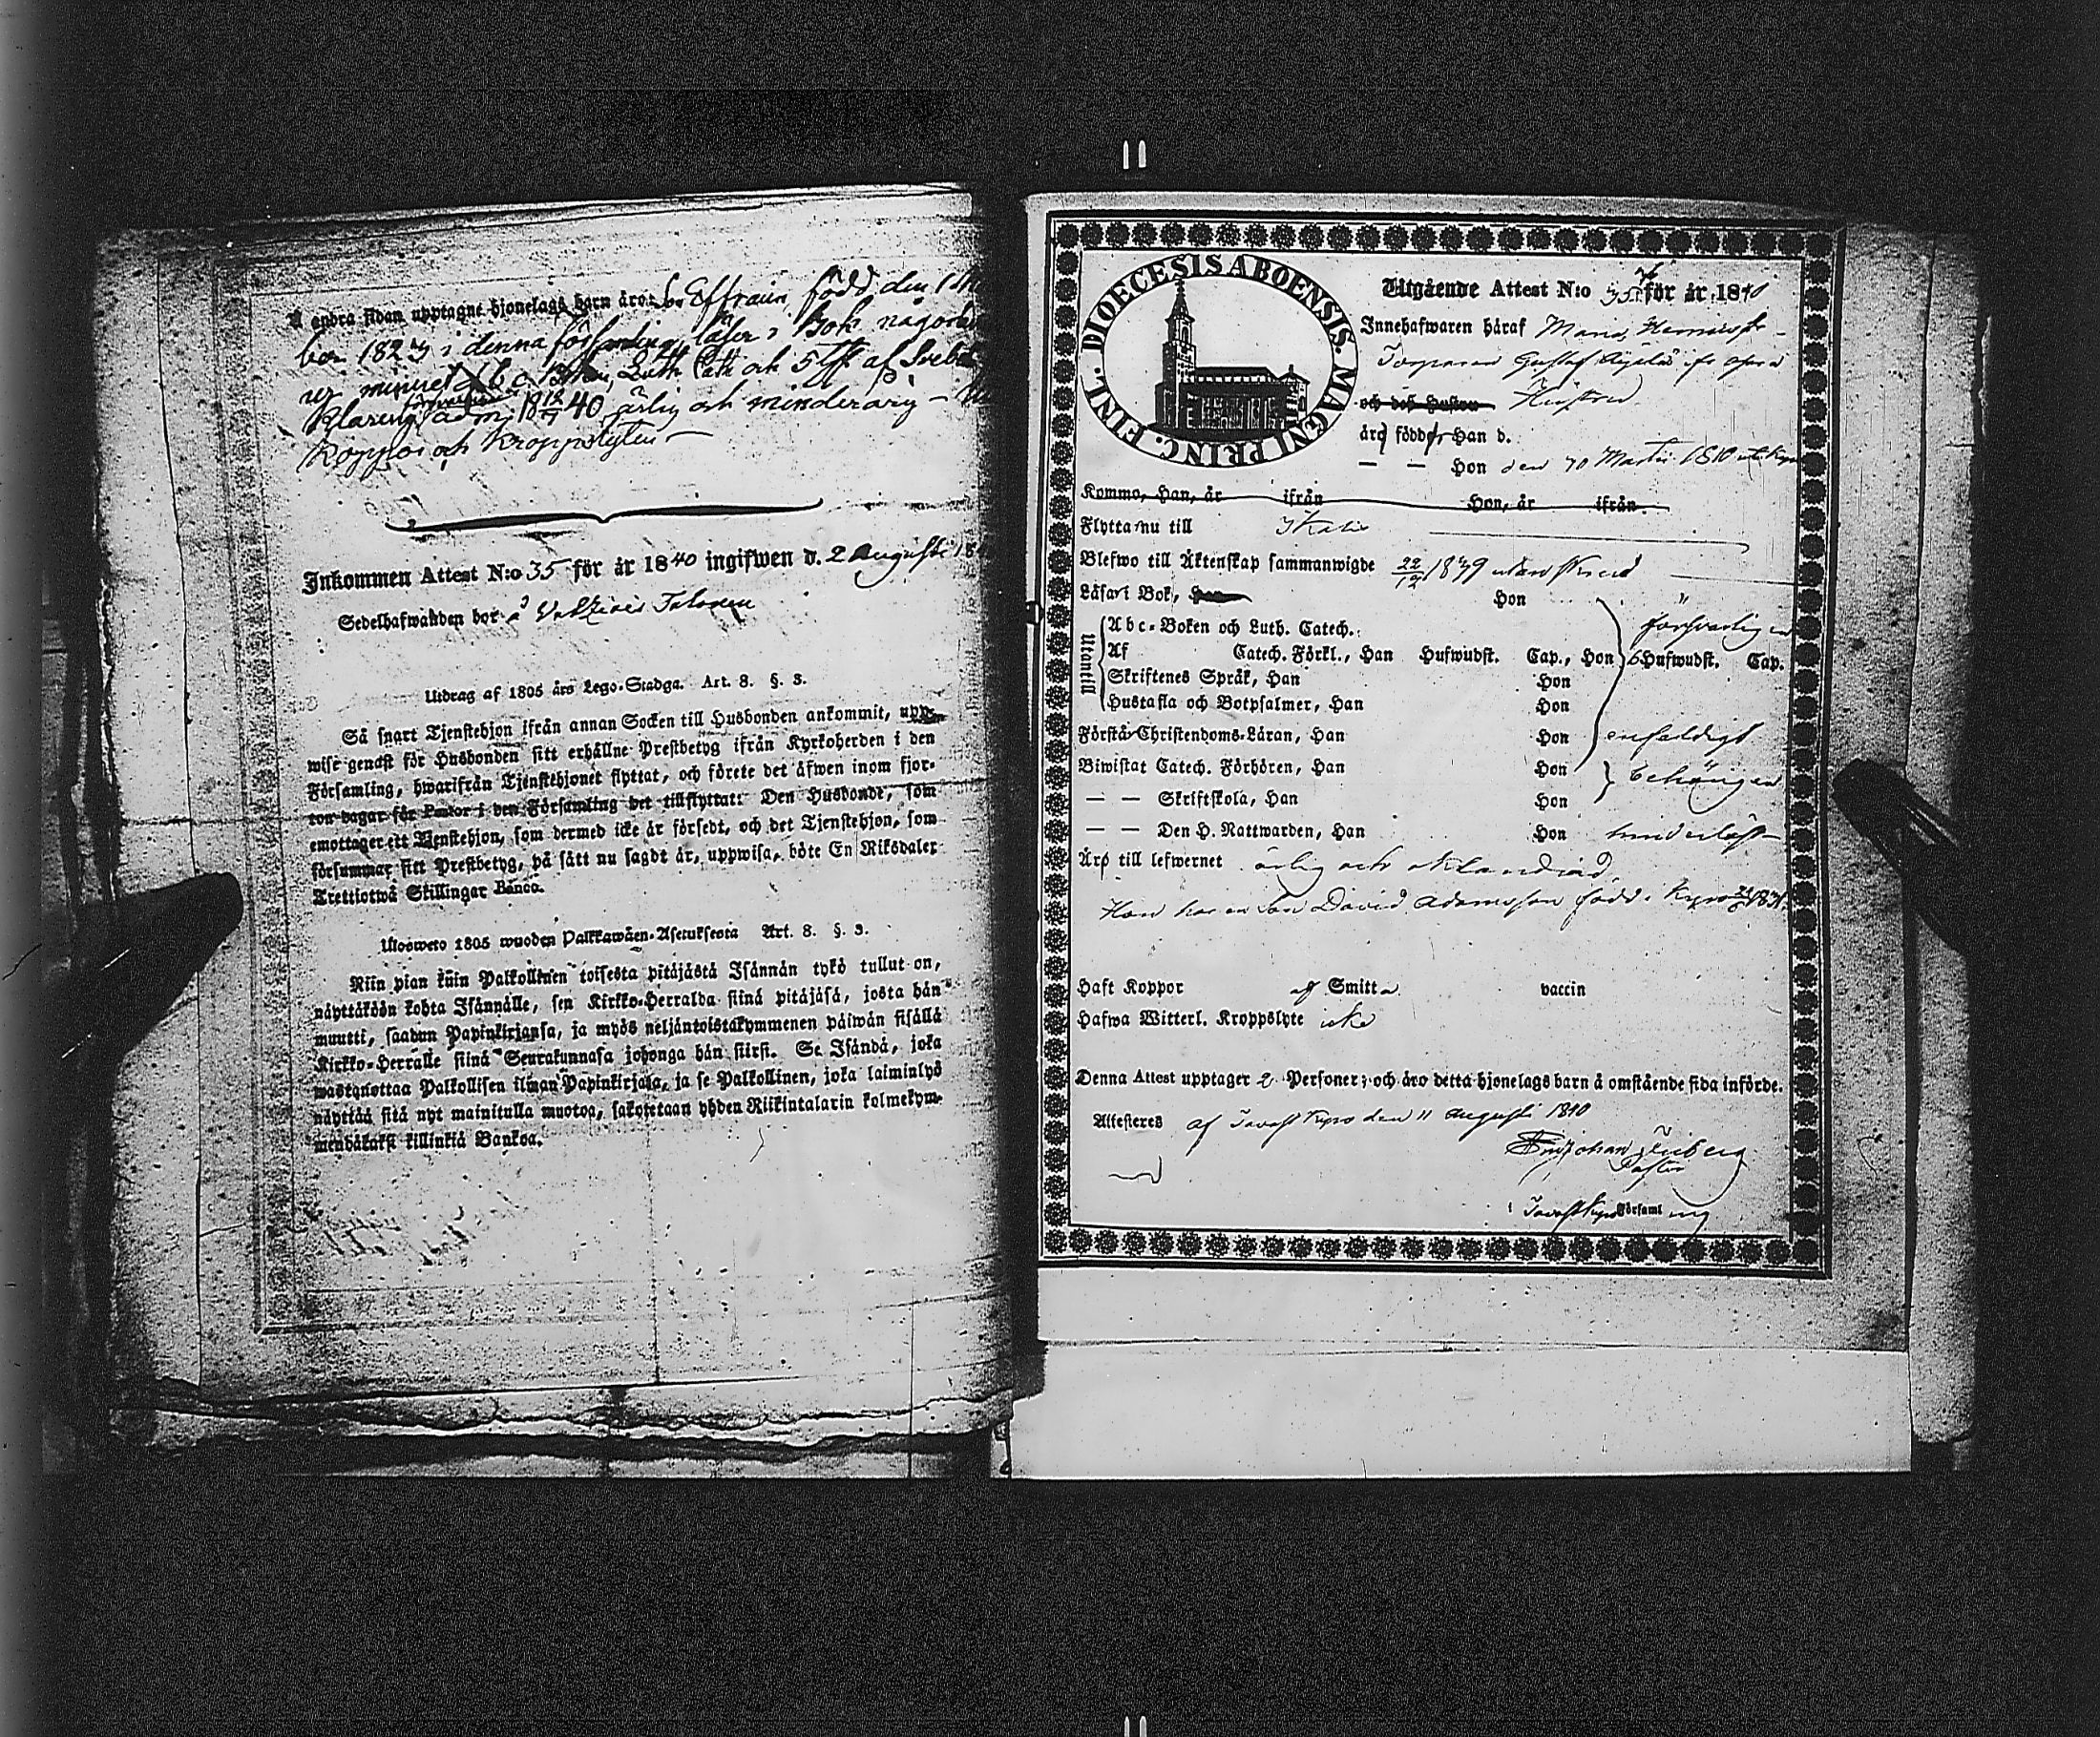 å andra sidan upptagne hjonelags barn äro: Son Effraim, född den 1
ber 1823 i denna församling, läser i Bok någorlun
ur minnet abc Boken, Luth Cate och 5 af Svebel
klaring adm: 18 12/7 40 ärlig och minderårig –
koppor och kroppslyten –
Inkommen Attest N:o 35 för år 1840 ingifwen d. 2 Augusti 18
Sedelhafwanden bor å
Utdrag af 1805 års Lego-Stadga. Art. 8. §. 3.
Så snart Tjenstehjon ifrån annan Socken till Husbonden ankommit, upp-
wise genast för Husbonden sitt erhållne Prestbetyg ifrån Kyrkoherden i den
Församling, hwarifrån Tjenstehjonet flyttat, och förete det äfwen inom fjor-
ton dagar för Pastor i den Församling det tillflyttat: Den Husbonde, som
emottager ett Tjenstehjon, som dermed icke är försedt, och det Tjenstehjon, som
försummar sitt Prestbetyg, på sätt nu sagdt är, uppwisa, böte En Riksdaler
Trettiotwå Skillingar Banco.
Ulosweto 1805 wuoden Palkkawäen-Asetuksesta Art. 8. §. 3.
Niin pian kuin Palkollinen toisesta pitäjästä Isännän tykö tullut on,
näyttäköön kohta Isännälle, sen Kirkko-Herralda siinä pitäjäsä, josta hän
muutti, saadun Papinkirjansa, ja myös neljäntoistakymmenen päiwän sisällä
Kirkko-Herralle siinä Seurakunnasa johonga hän siirsi. Se Isändä, joka
wastanottaa Palkollisen ilman Papinkirjata, ja se Palkollinen, joka laiminlyö
näyttää sitä nyt mainitulla muotoa, sakotetaan yhden Riikintalarin kolmekym-
mendäkaksi killinkiä Bankoa.
DIOECESIS ABOENSIS. MAGNI PRINC. FINL.
Utgående Attest N:o 35 för år 1840
Innehafwaren häraf Maria Henriksdr
Torparen Gustaf
och des Hustru Hustru
äro födde, Han d.
— — Hon den 10 Martii 1810 i Kyro
Kommo, Han, år ifrån Hon, år ifrån
Flytta nu till Ikalis
Blefwo till Äktenskap sammanwigde 22/12 1839
Läsa i Bok, Han Hon "
Utantill
Abc-Boken och Luth. Catech. försvarligen
Af Catech. Förkl., Han Hufwudst. Cap., Hon 5 Hufwudst. Cap.
Skriftenes Språk, Han Hon
Hustafla och Botpsalmer, Han Hon
Förstå Christendoms-Läran, Han Hon enfaldigt
Biwistat Catech. Förhören, Han Hon behörigen
— — Skriftskola, Han Hon
— — Den H. Nattwarden, Han Hon hinderlöst
Äro till lefwernet ärlig och oklandrad
Hon har en son David Adamsson född i Kyro 1831.
Haft Koppor af Smitta vaccin
Hafwa Witterl. Kroppslyte icke
Denna Attest upptager 2 Personer; och äro detta hjonelags barn å omstående sida införde.
Attesteres af Tavast Kyro den 11 Augusti 1840
Johan
Pastor
i Tavast Kyro Församling